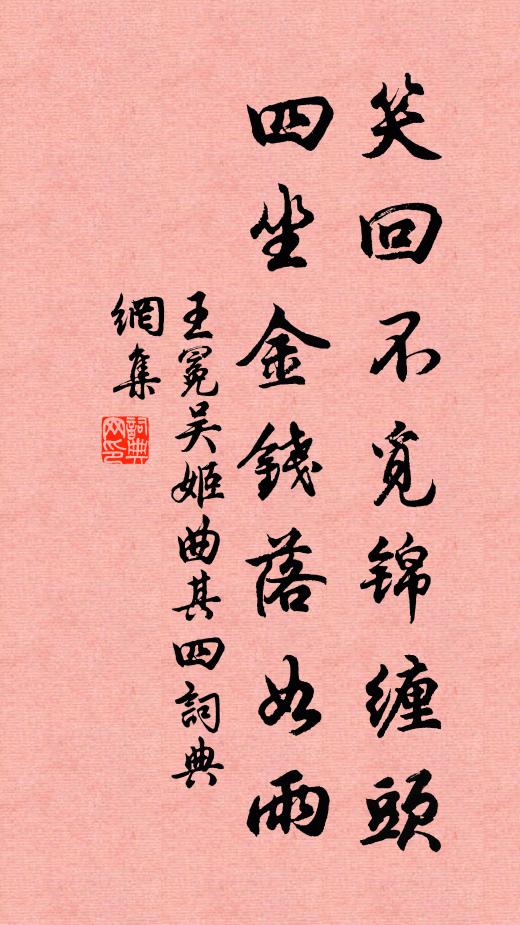 笑回不覓錦纏頭
四坐金錢落如雨
王冕吴姬曲其四詞典
網集
詞典网印